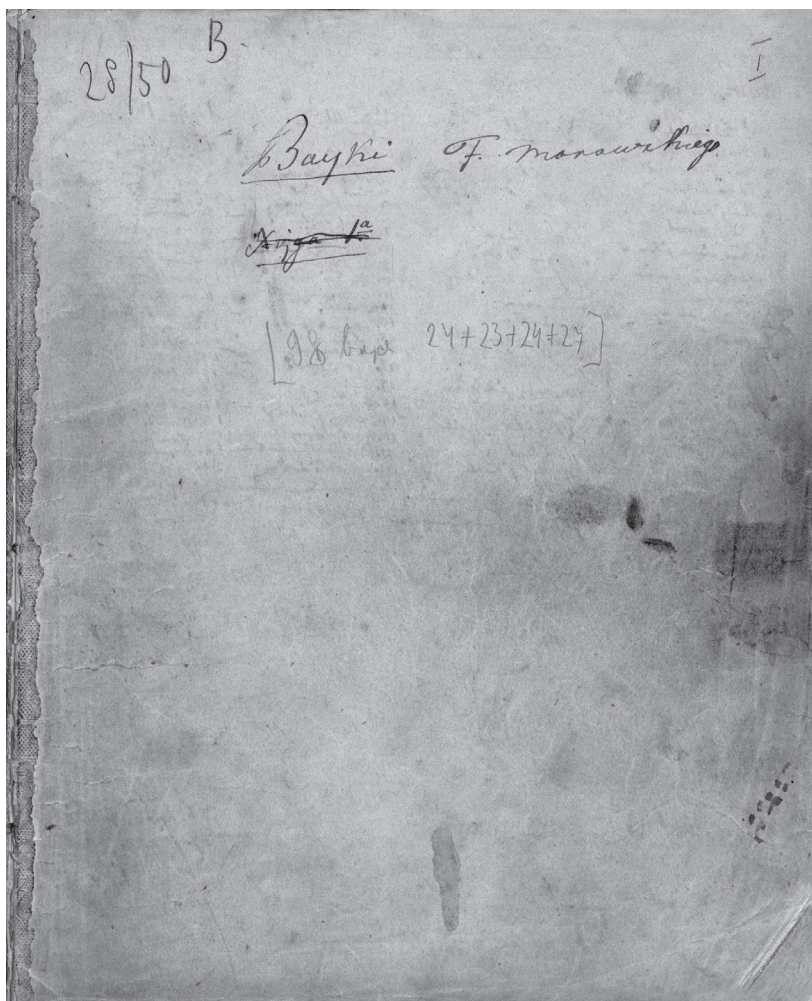 28/50 B. I
Bayki F. Morawskiego
Xięga 1ª
[98 bajek 24+23+24+27]